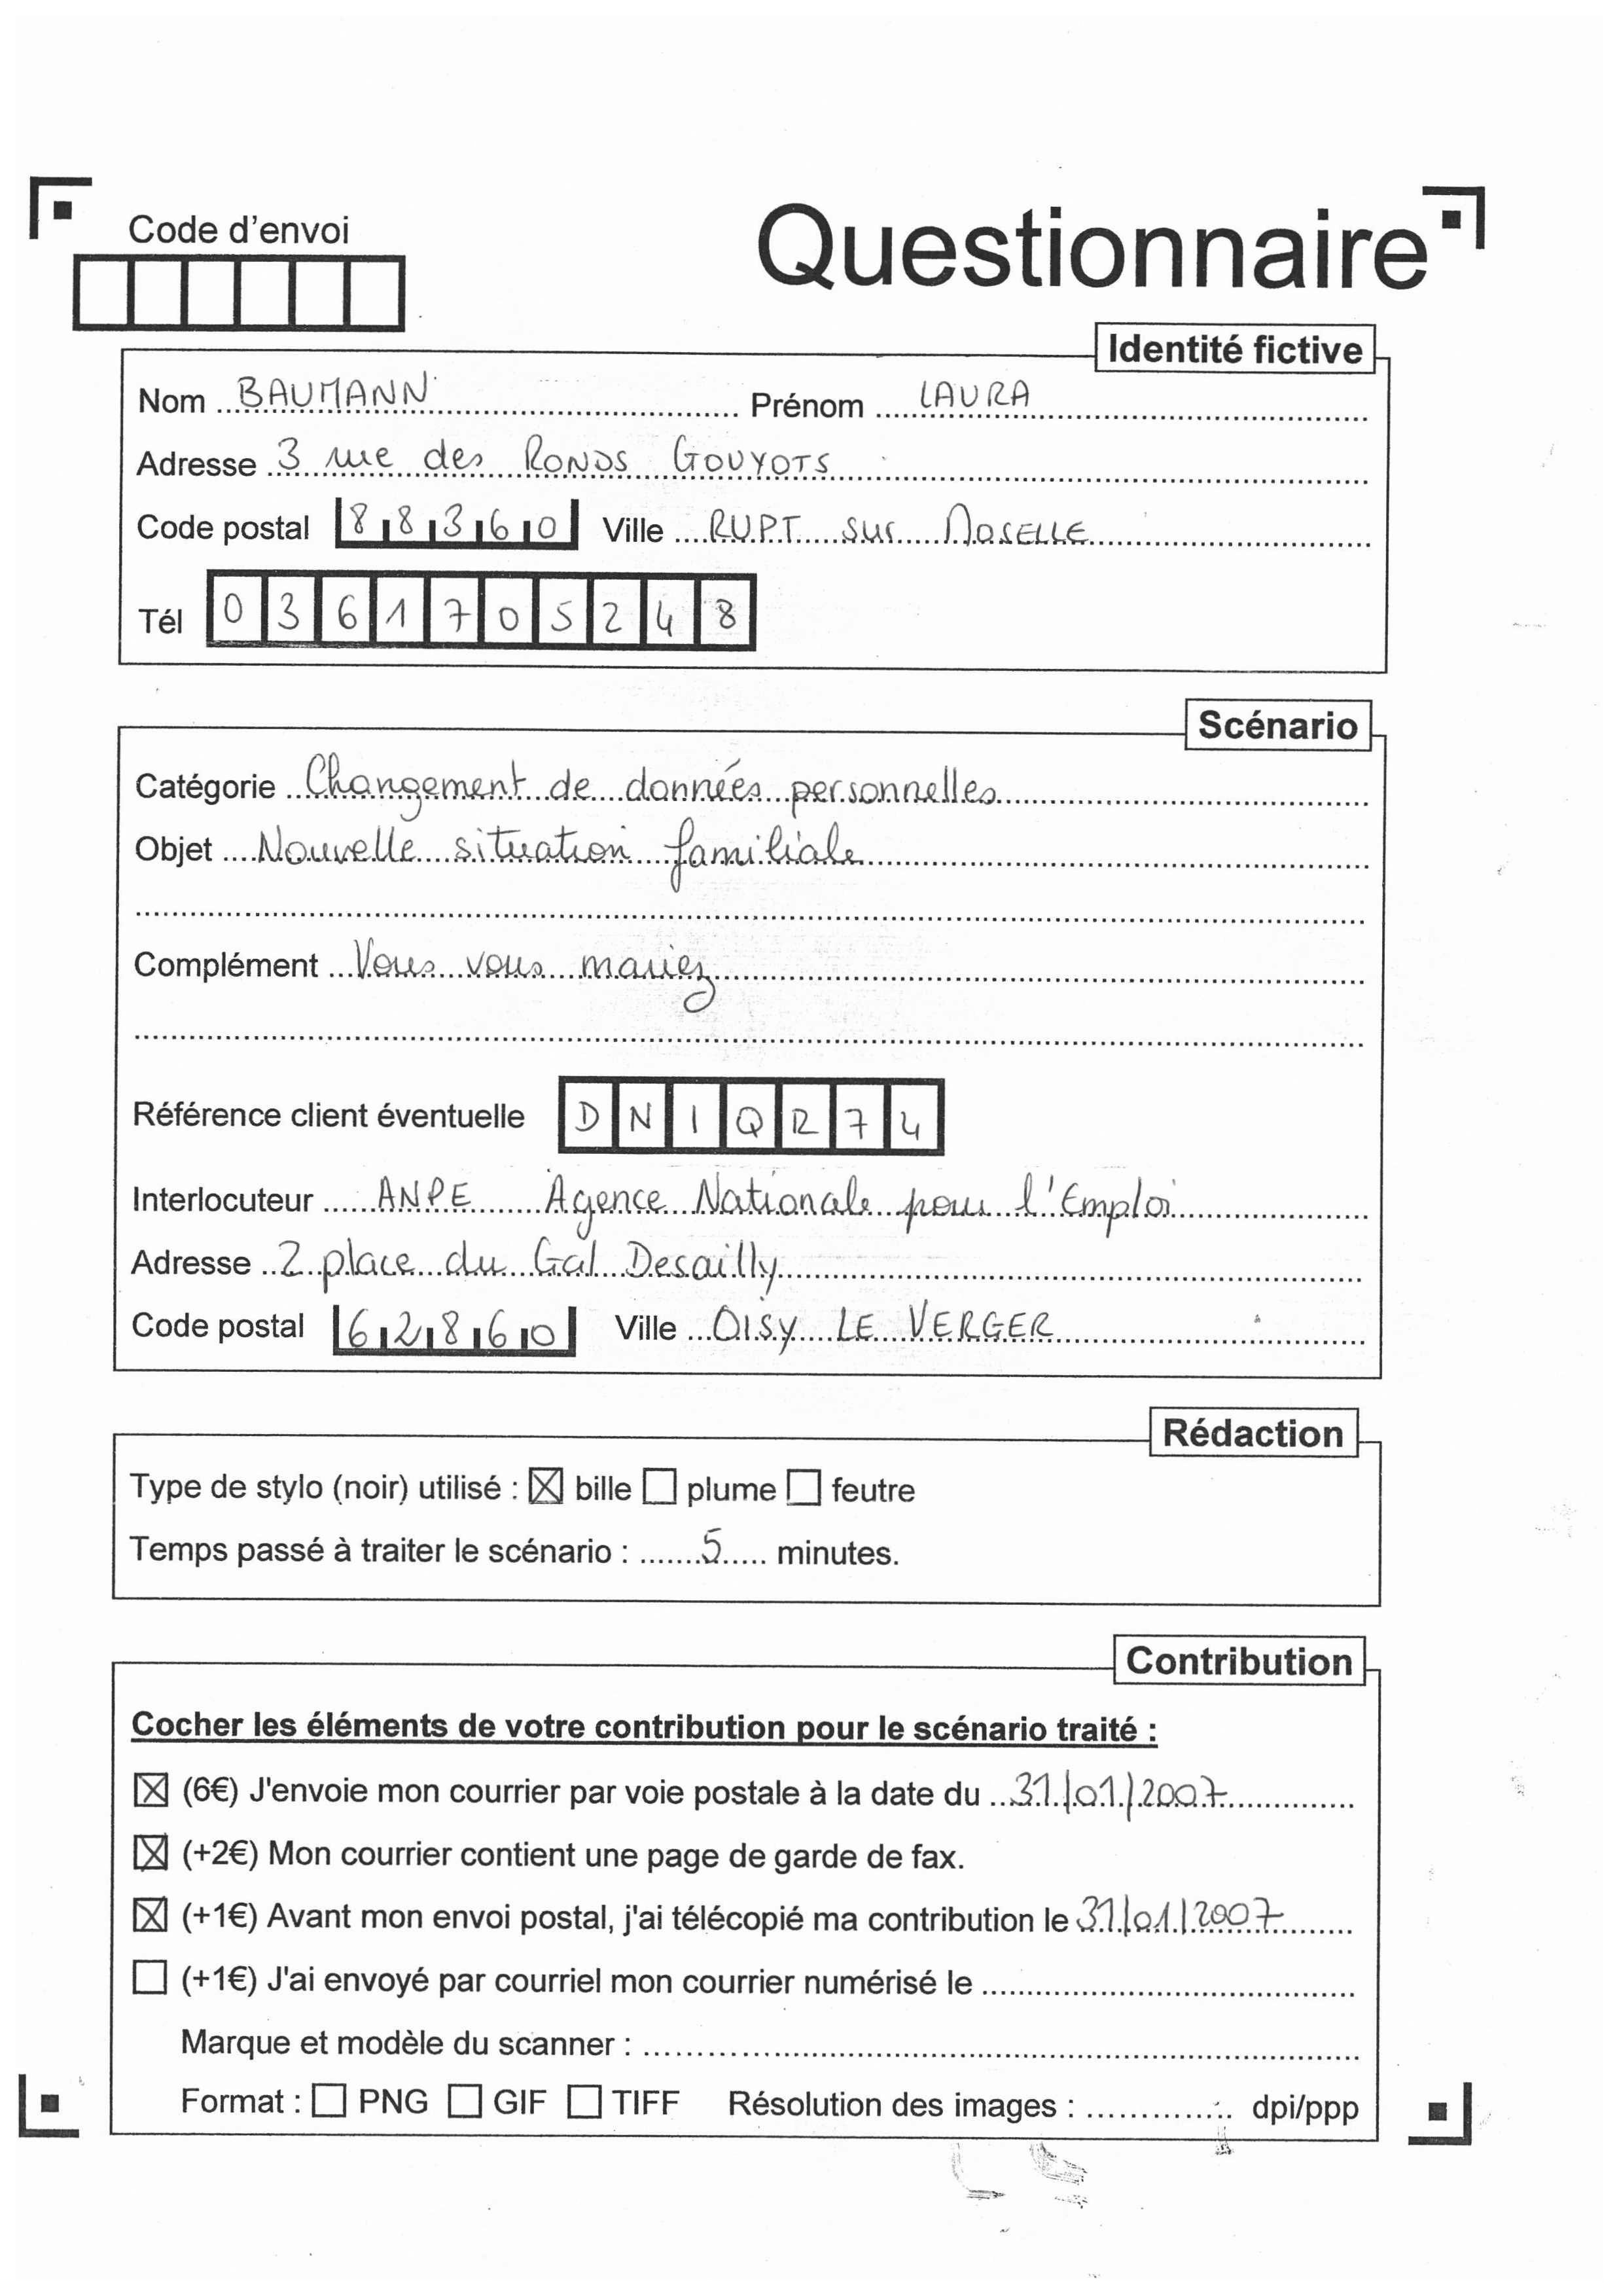 Code d'envoi
Questionnaire
Identité fictive
Nom BAUMANN Prénom LAURA
Adresse 3 rue des RONDS GOUYOTS
Code postal 88360 Ville RUPT sur MOSELLE
Tél 0361705248
Scénario
Catégorie Changement de données personnelles
Objet Nouvelle situation familiale
Complément Vous vous mariez
Référence client éventuelle DNIQR74
Interlocuteur ANPE Agence Nationale pour l'Emploi
Adresse 2 place du Gal Desailly
Code postal 62860 Ville OISY LE VERGER
Rédaction
Type de stylo (noir) utilisé : ☒ bille ☐ plume ☐ feutre
Temps passé à traiter le scénario : 5 minutes.
Contribution
Cocher les éléments de votre contribution pour le scénario traité :
☒ (6€) J'envoie mon courrier par voie postale à la date du 31/01/2007
☒ (+2€) Mon courrier contient une page de garde de fax.
☒ (+1€) Avant mon envoi postal, j'ai télécopié ma contribution le 31/01/2007
☐ (+1€) J'ai envoyé par courriel mon courrier numérisé le
Marque et modèle du scanner :
Format : ☐ PNG ☐ GIF ☐ TIFF Résolution des images : dpi/ppp